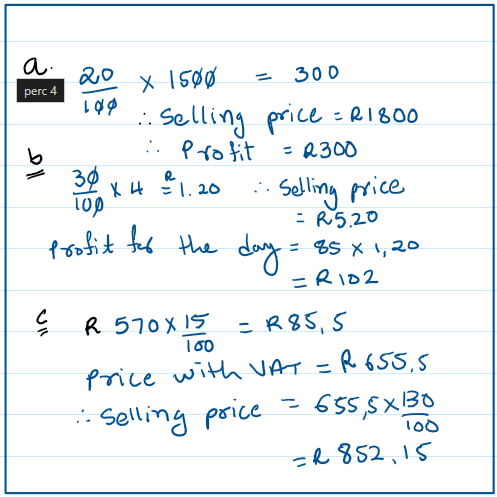 a.
20/100 × 1500 = 300
perc 4
∴ Selling price = R1800
∴ Profit = R300
b
30/100 × 4 = R1.20 ∴ Selling price
= R5.20
Profit for the day = 85 × 1,20
= R102
c R 570 × 15/100 = R85,5
Price with VAT = R655,5
∴ Selling price = 655,5 × 130/100
= R 852,15